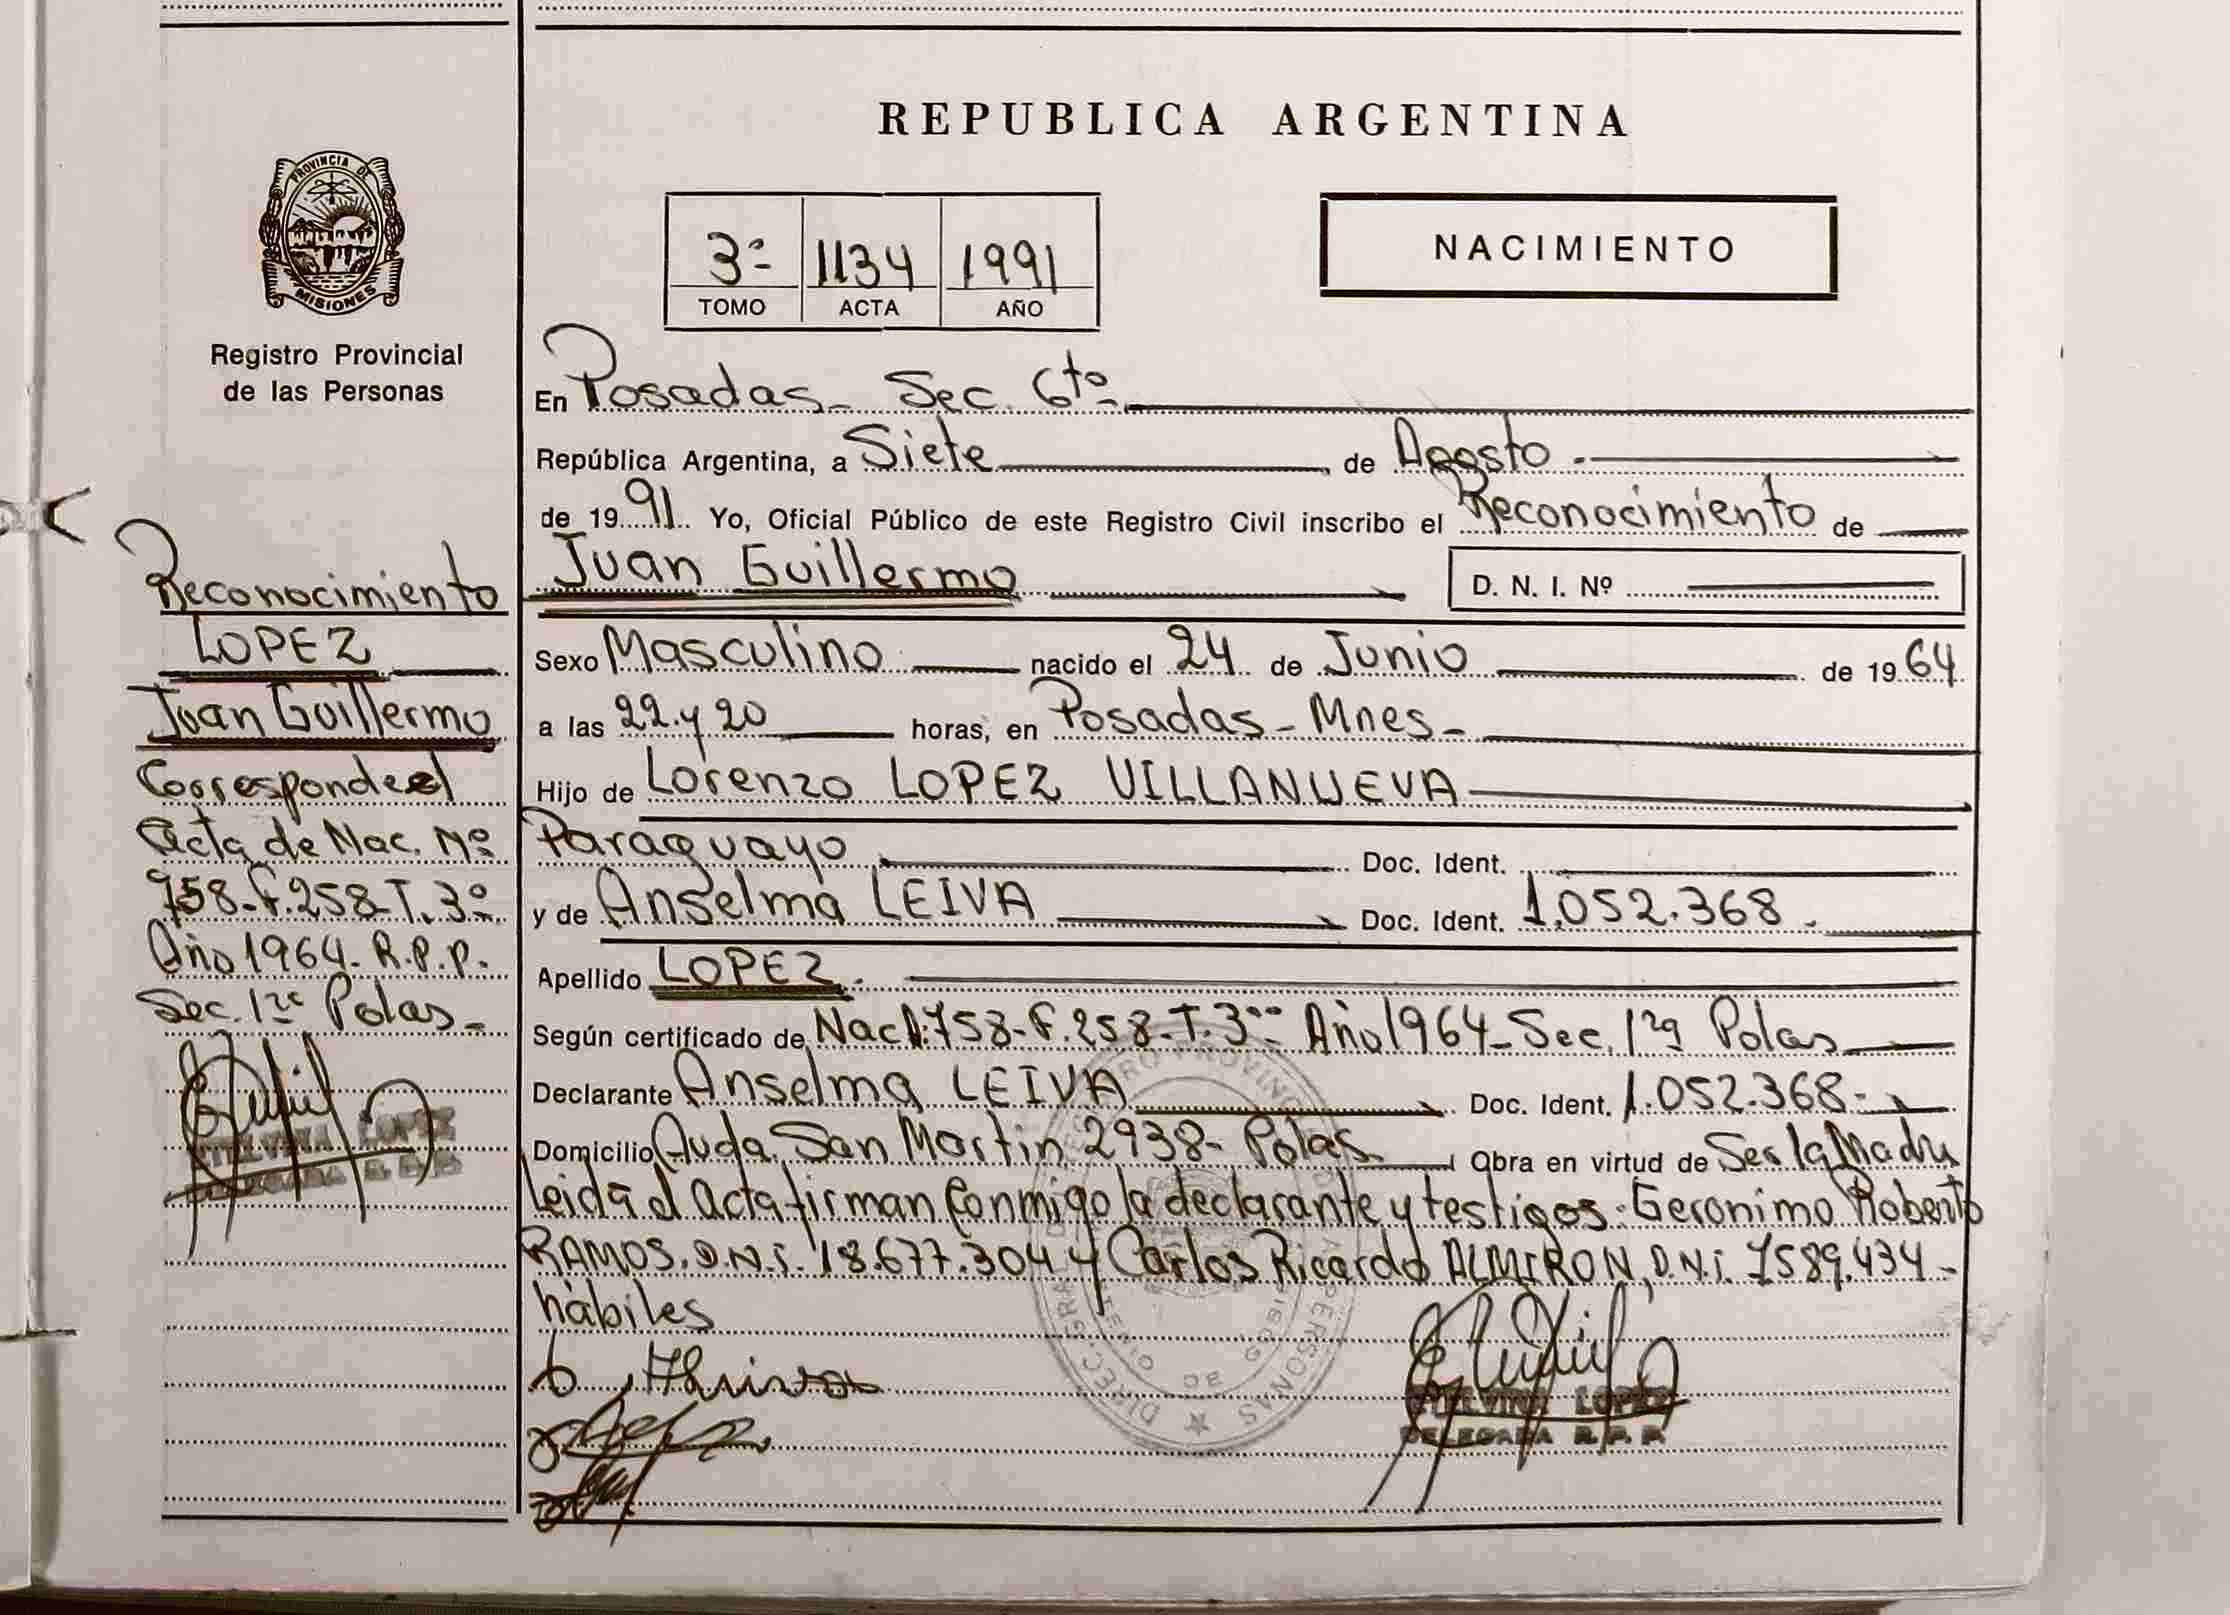 REPUBLICA ARGENTINA
PROVINCIA DE
MISIONES
Registro Provincial
de las Personas
3º-
1134
1991
TOMO
ACTA
AÑO
NACIMIENTO
En Posadas - Sec. 6ta-
República Argentina, a Siete de Agosto.-
de 1991 Yo, Oficial Público de este Registro Civil inscribo el Reconocimiento de
Juan Guillermo D. N. I. Nº
Sexo Masculino nacido el 24 de Junio de 1964
a las 22.y 20 horas, en Posadas - Mnes-
Hijo de Lorenzo LOPEZ VILLANUEVA
Paraguayo Doc. Ident.
y de Anselma LEIVA Doc. Ident. 1.052.368.
Apellido LOPEZ.
Según certificado de Nac A:758-F.258-T.3ro Año 1964-Sec. 1ra Pdas
Declarante Anselma LEIVA Doc. Ident. 1.052.368-
Domicilio Avda. San Martin 2938- Pdas. Obra en virtud de Ser la Madre
Leida el Acta firman conmigo la declarante y testigos: Geronimo Roberto
RAMOS. D.N.I. 18.677.304 y Carlos Ricardo ALMIRON, D.N.I. 7589.434-
hábiles
STELVINA LOPEZ
DELEGADA R. P. P.
Reconocimiento
LOPEZ
Juan Guillermo
Corresponde el
Acta de Nac. Nº
758-F.258-T.3º
Año 1964- R.P.P.
Sec. 1ra Pdas-
STELVINA LOPEZ
DELEGADA R. P. P.